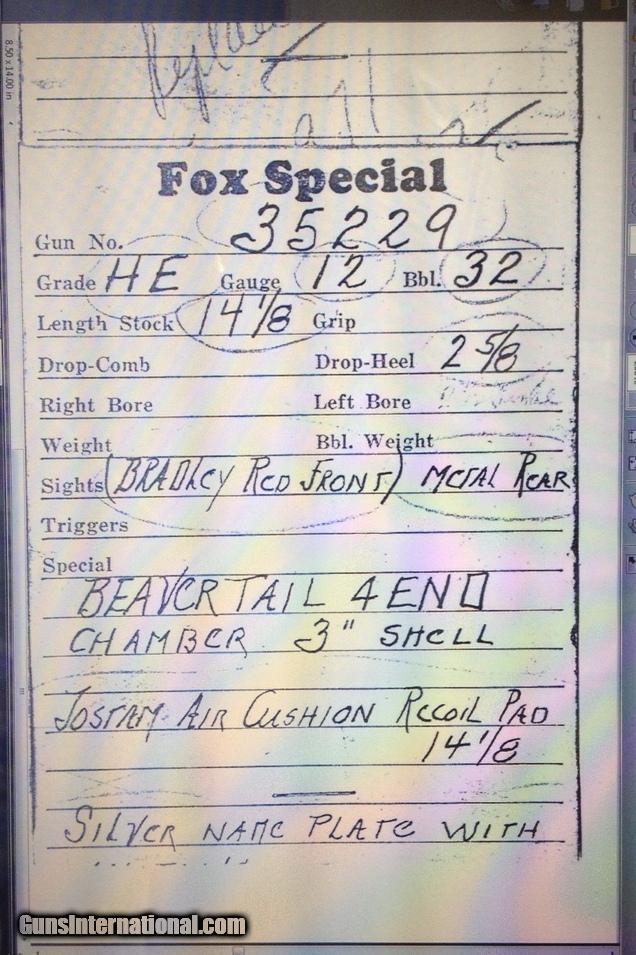 8.50 x 14.00 in
Fox Special
Gun No. 35229
Grade HE Gauge 12 Bbl. 32
Length Stock 14 1/8 Grip
Drop-Comb Drop-Heel 2 5/8
Right Bore Left Bore
Weight Bbl. Weight
Sights (BRADLEY RED FRONT) METAL REAR
Triggers
Special
BEAVERTAIL 4END
CHAMBER 3" SHELL
JOSTAM AIR CUSHION RECOIL PAD
14 1/8
SILVER NAME PLATE WITH
GunsInternational.com